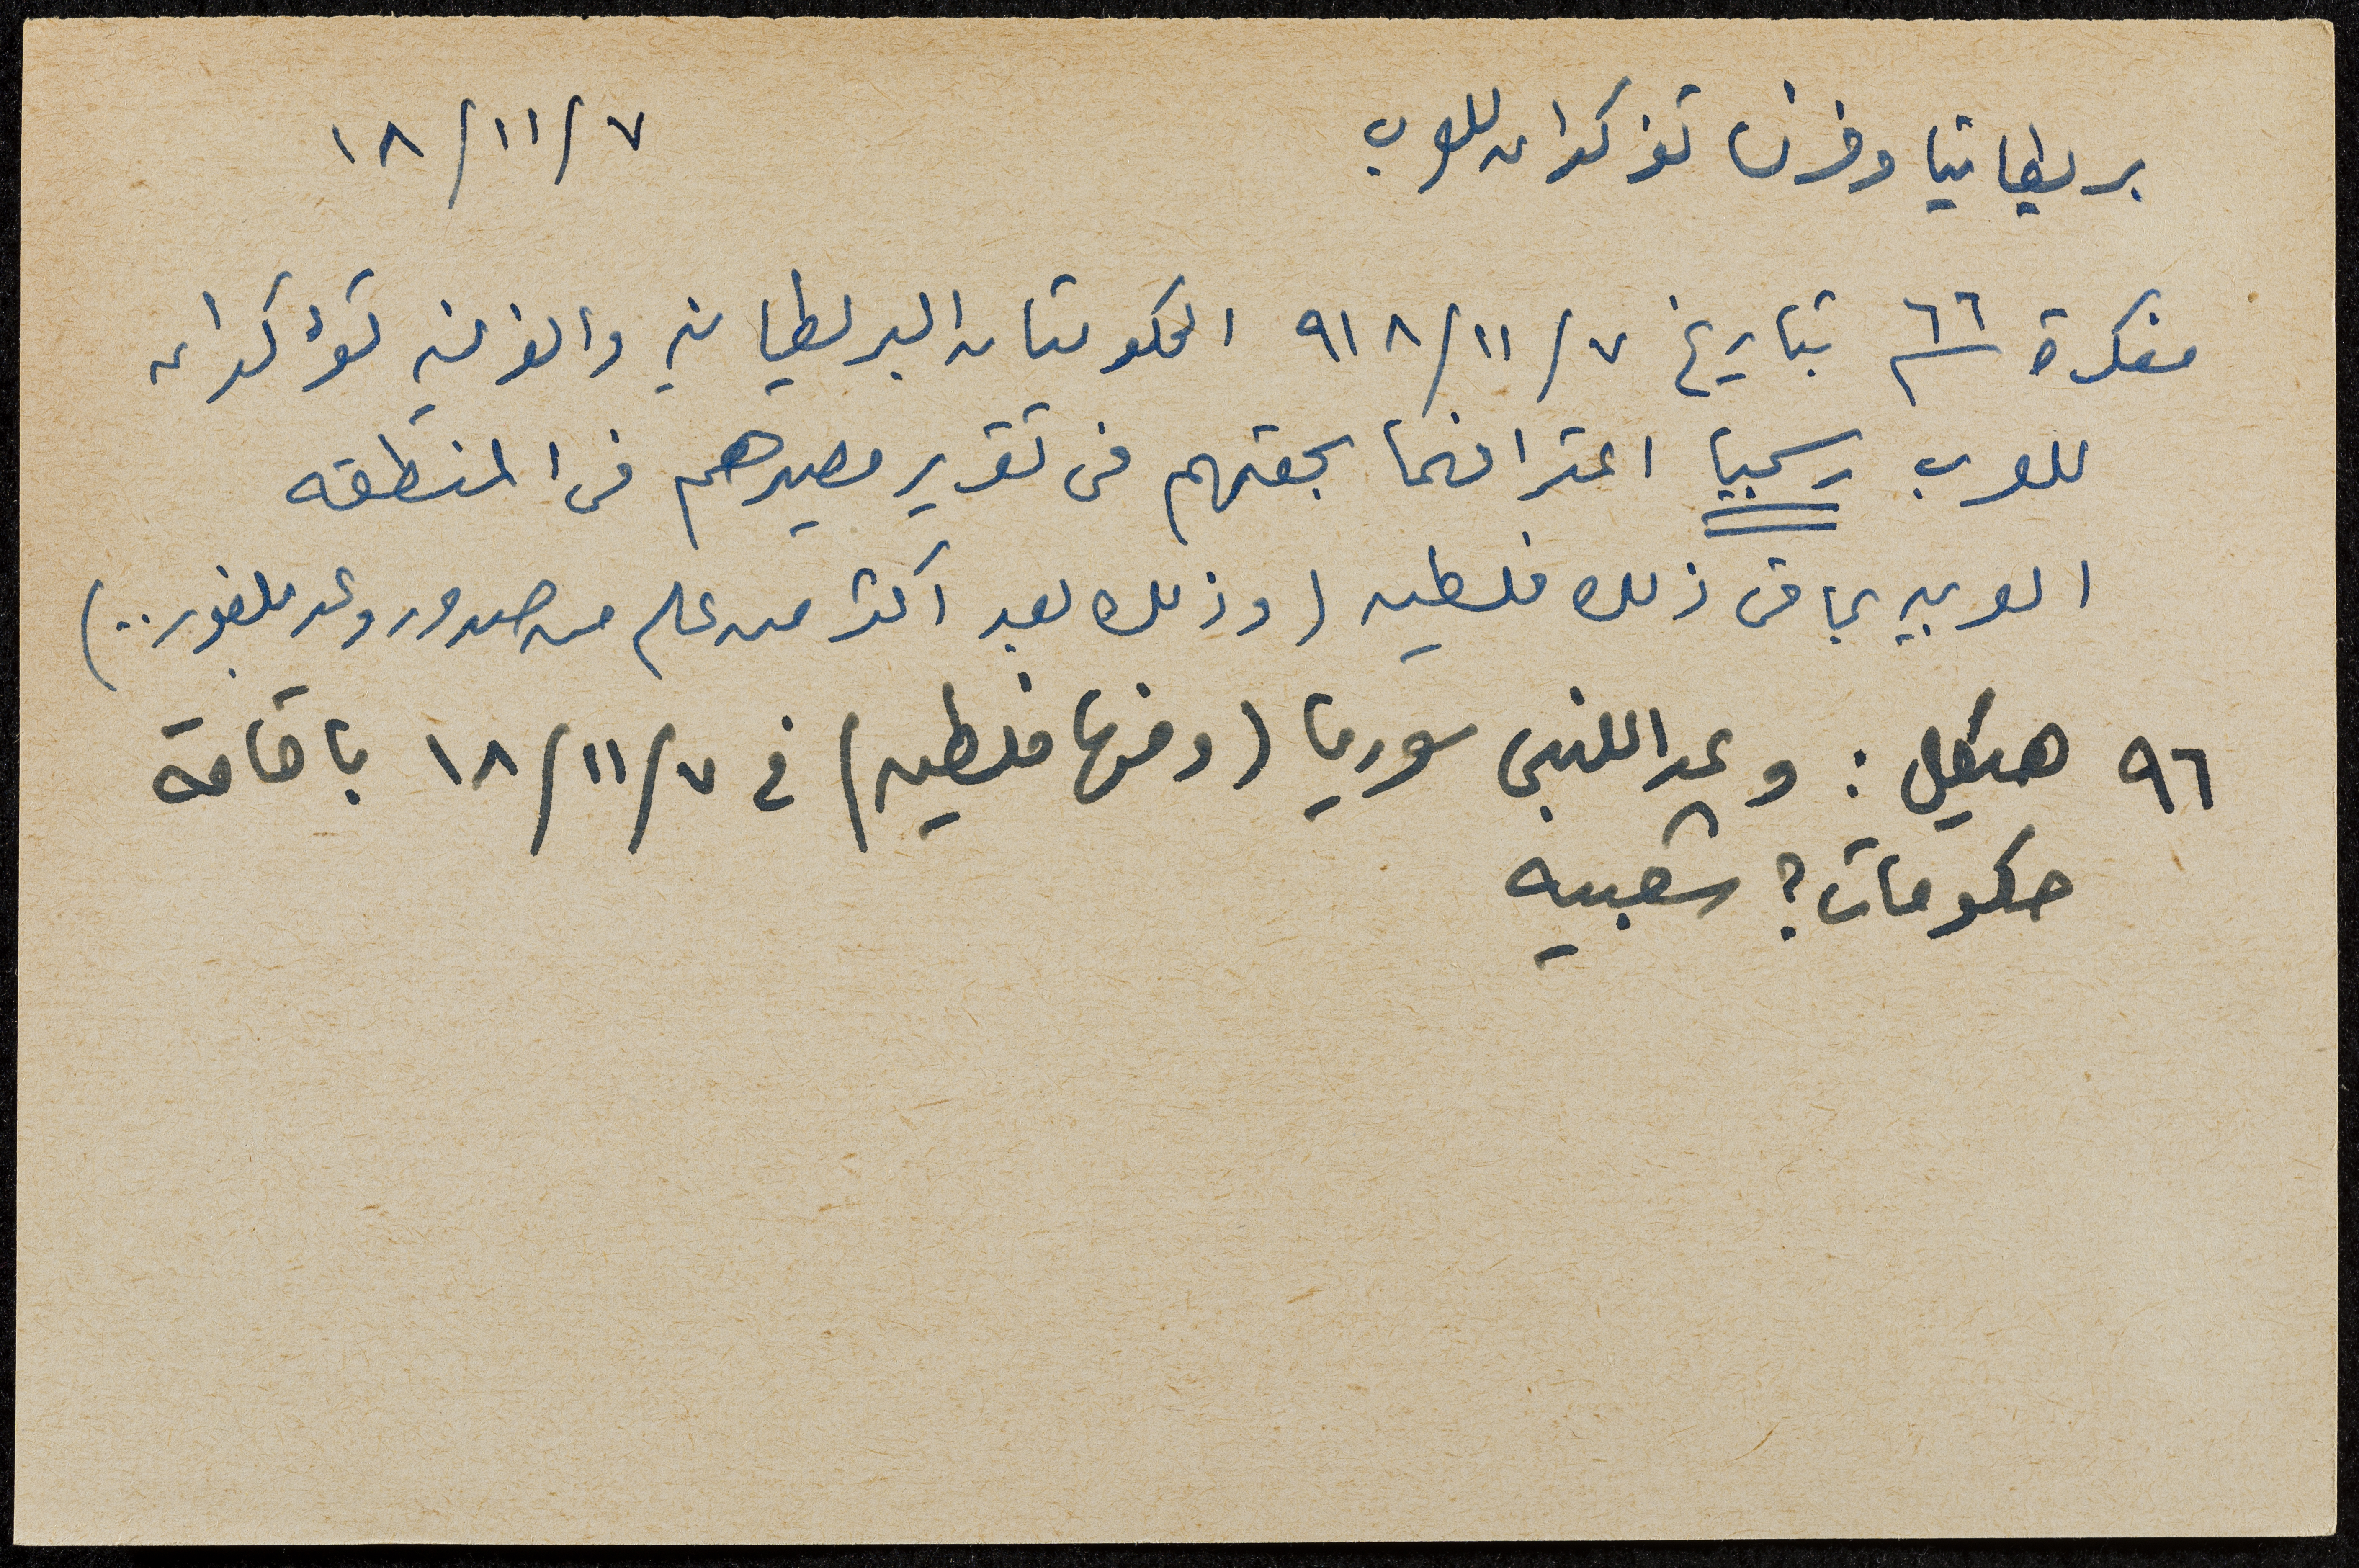 بريطانيا وفرنسا تؤكدان للعرب ٧/١١/١٨
مفكرة ٦٦ بتاريخ ٧/١١/٩١٨ الحكومتان البريطانيه والفرنسيه تؤكدان
للعرب رسميا اعترافهما بحقهم فى تقرير مصيرهم فى المنطقه
العربيه بما فى ذلك فلسطين (وذلك بعد اكثر من عام من صدور وعد بلفور..)
٩٦ هيكل : وعد اللنبى سوريا (ومنها فلسطين) فى ٧/١١/١٨ باقامة
حكومات؟ شعبيه